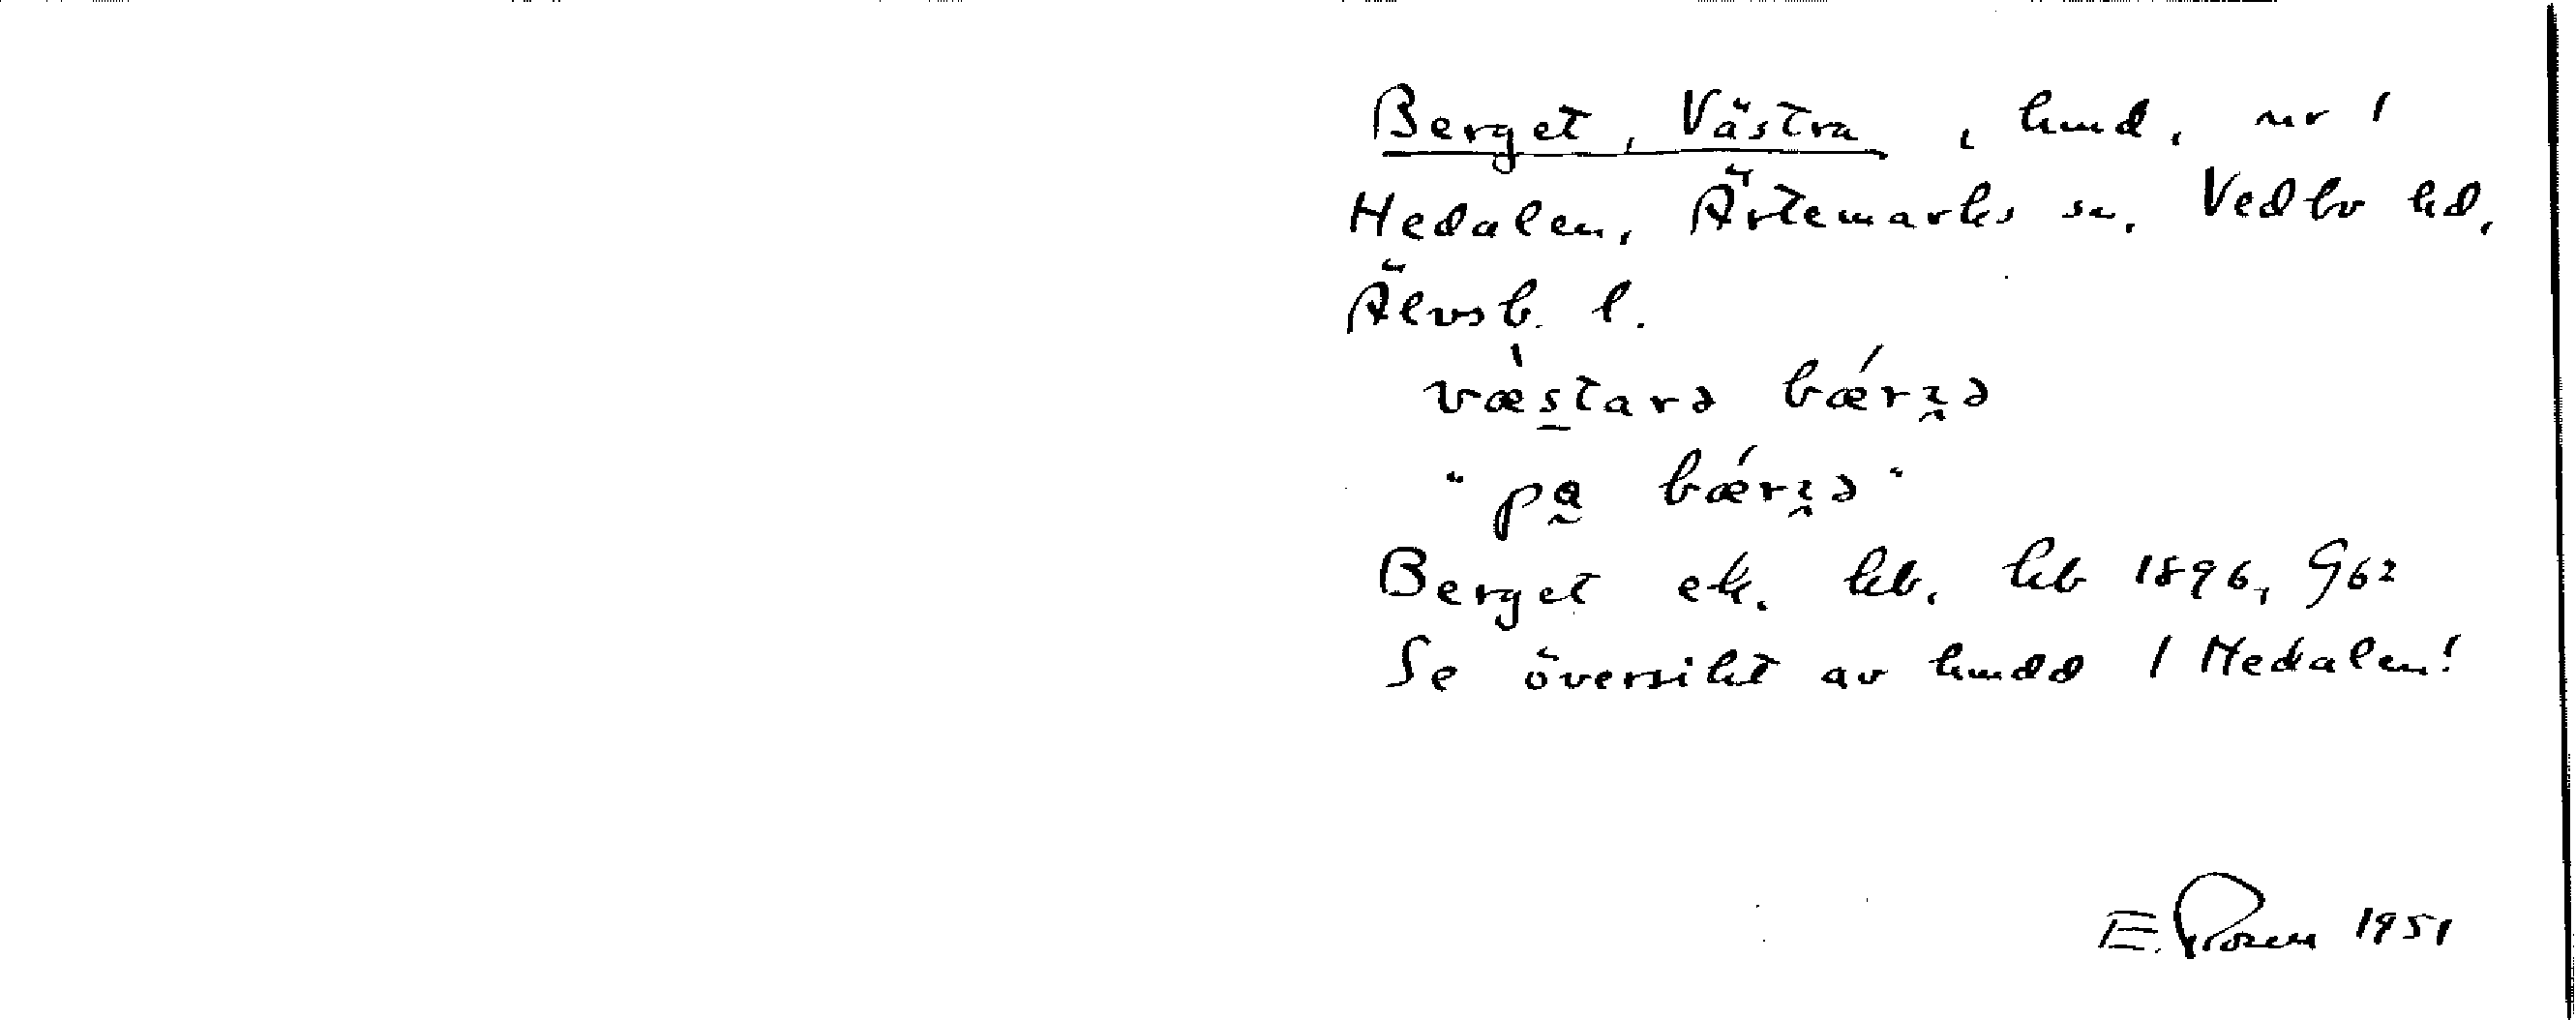 Berget, Västra, hmd, nr 1
Hedalen, Ärtemarks sn. Vedbo hd,
Älvsb. l.
væ̀starə bǽrʒə
"pa bǽrʒə"
Berget ek. kb. kb 1896, G62
Se översikt av hmdd 1 Hedalen!
E. Rosen 1951